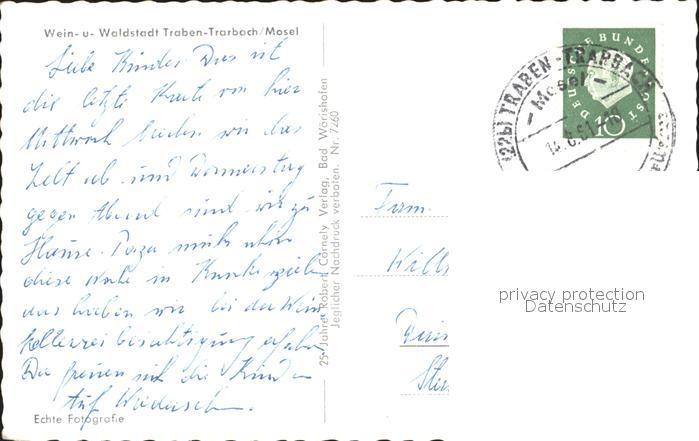 Wein- u- Waldstadt Traben-Trarbach/Mosel
Liebe Kinder Das ist
die letzte Karte von hier
Mittwoch brechen wir das
Zelt ab und Donnerstag
gegen Abend sind wir zu
Hause. Papa
diese Karte in
das haben wir bei der Wein
kellerei besichtigung erfahren
Die freuen sich die Kinder
Auf Wiedersehn.
Echte Fotografie
25 Jahre Robert Cornely Verlag, Bad Wörishofen
Jeglicher Nachdruck verboten. Nr. 7260
DEUTSCHE BUNDESPOST
10
(22b) TRABEN-TRARBACH
- Mosel -
14.8.61
Fam.
Will
privacy protection
Datenschutz